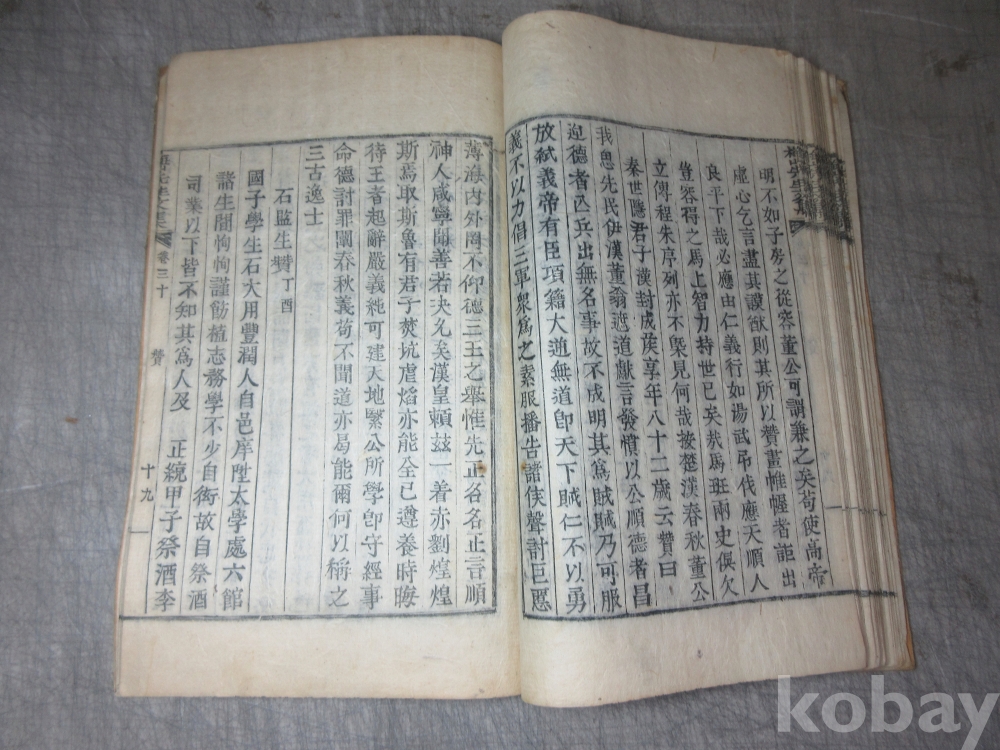 明不如子房之從容董公可謂兼之矣苟使高帝
虛心乞言盡其謨猷則其所以贊畫帷幄者詎出
良平下哉必應由仁義行如湯武弔伐應天順人
豈容得之馬上智力持世已矣哉馬班兩史俱欠
立傳程朱序列亦不槩見何哉按楚漢春秋董公
秦世隱君子漢封成侯享年八十二歲云贊曰
我思先民伊漢董翁遮道獻言發憤以公順德者昌
逆德者亡兵出無名事故不成明其爲賊賊乃可服
放弒義帝有臣項籍大逆無道卽天下賊仁不以勇
義不以力倡三軍衆爲之素服播告諸侯聲討巨慝
薄海內外罔不仰德三王之舉惟先正名名正言順
神人咸寧聞善若決允矣漢皇賴玆一着赤劉煌煌
斯焉取斯魯有君子焚坑虐焰亦能全己遵養時晦
待王者起辭嚴義純可建天地繄公所學卽守經事
命德討罪闡春秋義苟不聞道亦曷能爾何以稱之
三古逸士
石監生贊 丁酉
國子學生石大用豐潤人自邑庠陞太學處六館
諸生間恂恂謹飭植志務學不少自衒故自祭酒
司業以下皆不知其爲人及 正統甲子祭酒李
卷三十 贊 十九
kobay